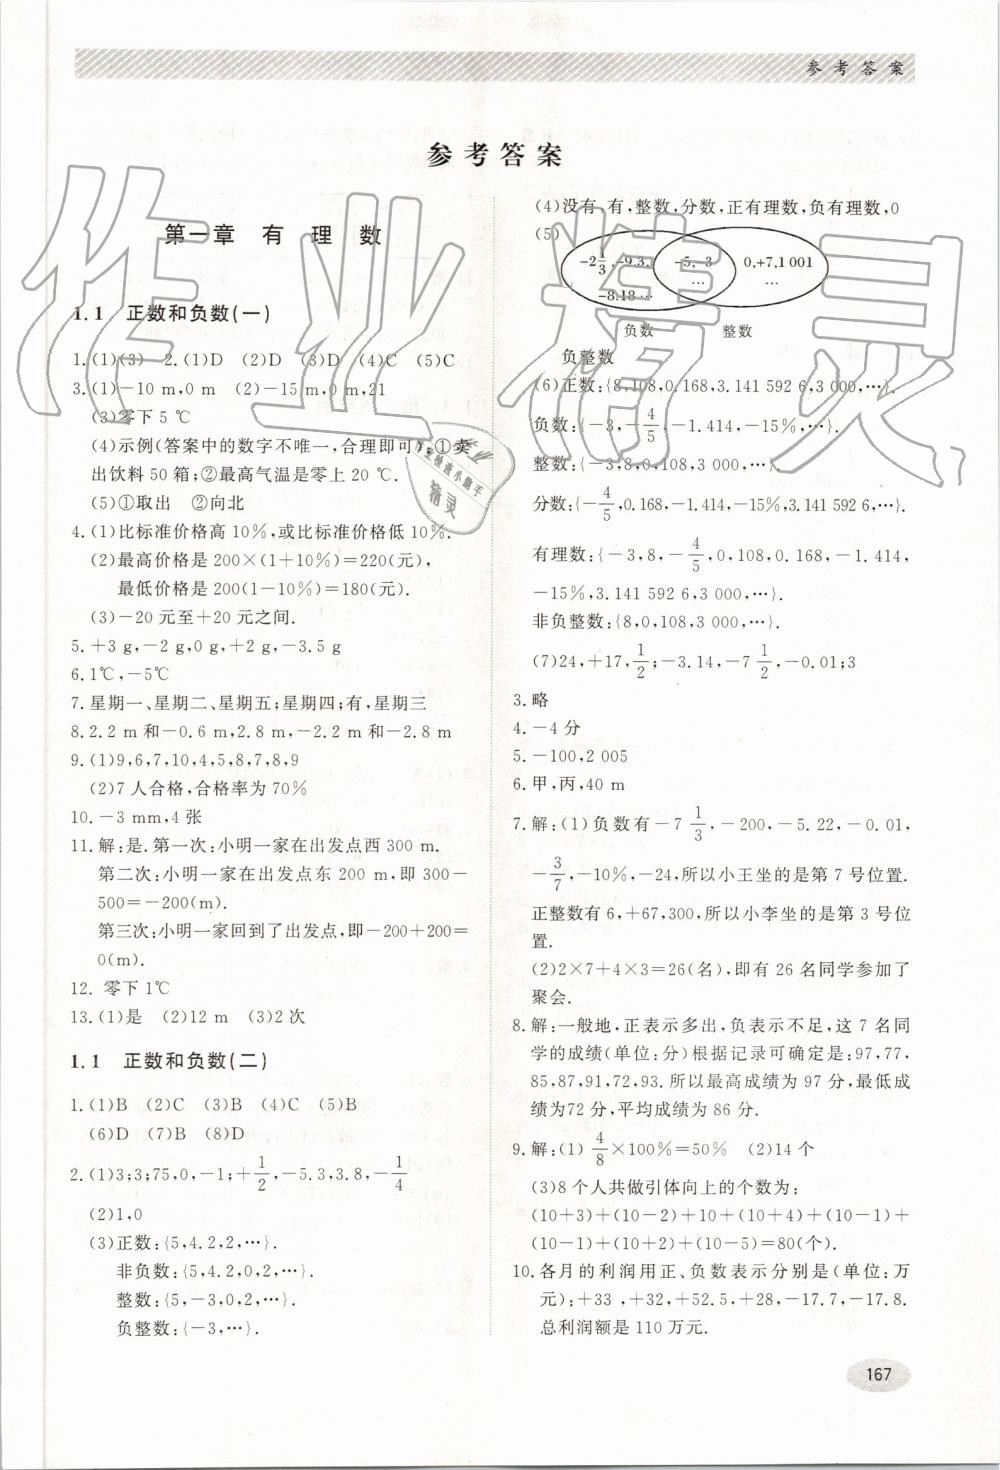 参考答案
参考答案
第一章 有理数
1.1 正数和负数(一)
1.(1)(3) 2.(1)D (2)D (3)D (4)C (5)C
3.(1)-10 m,0 m (2)-15 m,0 m,21
(3)零下5 ℃
(4)示例(答案中的数字不唯一,合理即可):①卖
出饮料50箱;②最高气温是零上20 ℃.
(5)①取出 ②向北
4.(1)比标准价格高10%,或比标准价格低10%.
(2)最高价格是200×(1+10%)=220(元),
最低价格是200(1-10%)=180(元).
(3)-20元至+20元之间.
5.+3 g,-2 g,0 g,+2 g,-3.5 g
6.1℃,-5℃
7.星期一、星期二、星期五;星期四;有,星期三
8.2.2 m和-0.6 m,2.8 m,-2.2 m和-2.8 m
9.(1)9,6,7,10,4,5,8,7,8,9
(2)7人合格,合格率为70%
10.-3 mm,4张
11.解:是.第一次:小明一家在出发点西300 m.
第二次:小明一家在出发点东200 m,即300-
500=-200(m).
第三次:小明一家回到了出发点,即-200+200=
0(m).
12. 零下1℃
13.(1)是 (2)12 m (3)2次
1.1 正数和负数(二)
1.(1)B (2)C (3)B (4)C (5)B
(6)D (7)B (8)D
2.(1)3;3;75,0,-1;+1/2,-5.3,3.8,-1/4
(2)1,0
(3)正数:{5,4.2,2,…}.
非负数:{5,4.2,0,2,…}.
整数:{5,-3,0,2,…}.
负整数:{-3,…}.
(4)没有,有,整数,分数,正有理数,负有理数,0
(5)
-2 1/3,-9.3, -5,-3 0,+7,1 001
-8.18… … …
负数 整数
负整数
(6)正数:{8,108,0.168,3.141 592 6,3 000,…}.
负数:{-3,-4/5,-1.414,-15%,…}.
整数:{-3,8,0,108,3 000,…}.
分数:{-4/5,0.168,-1.414,-15%,3.141 592 6,…}.
有理数:{-3,8,-4/5,0,108,0.168,-1.414,
-15%,3.141 592 6,3 000,…}.
非负整数:{8,0,108,3 000,…}.
(7)24,+17,1/2;-3.14,-7 1/2,-0.01;3
3.略
4.-4分
5.-100,2 005
6.甲,丙,40 m
7.解:(1)负数有-7 1/3,-200,-5.22,-0.01,
-3/7,-10%,-24,所以小王坐的是第7号位置.
正整数有6,+67,300,所以小李坐的是第3号位
置.
(2)2×7+4×3=26(名),即有26名同学参加了
聚会.
8.解:一般地,正表示多出,负表示不足,这7名同
学的成绩(单位:分)根据记录可确定是:97,77,
85,87,91,72,93.所以最高成绩为97分,最低成
绩为72分,平均成绩为86分.
9.解:(1)4/8×100%=50% (2)14个
(3)8个人共做引体向上的个数为:
(10+3)+(10-2)+10+(10+4)+(10-1)+
(10-1)+(10+2)+(10-5)=80(个).
10.各月的利润用正、负数表示分别是(单位:万
元):+33,+32,+52.5,+28,-17.7,-17.8.
总利润额是110万元.
167
作业精灵
精灵